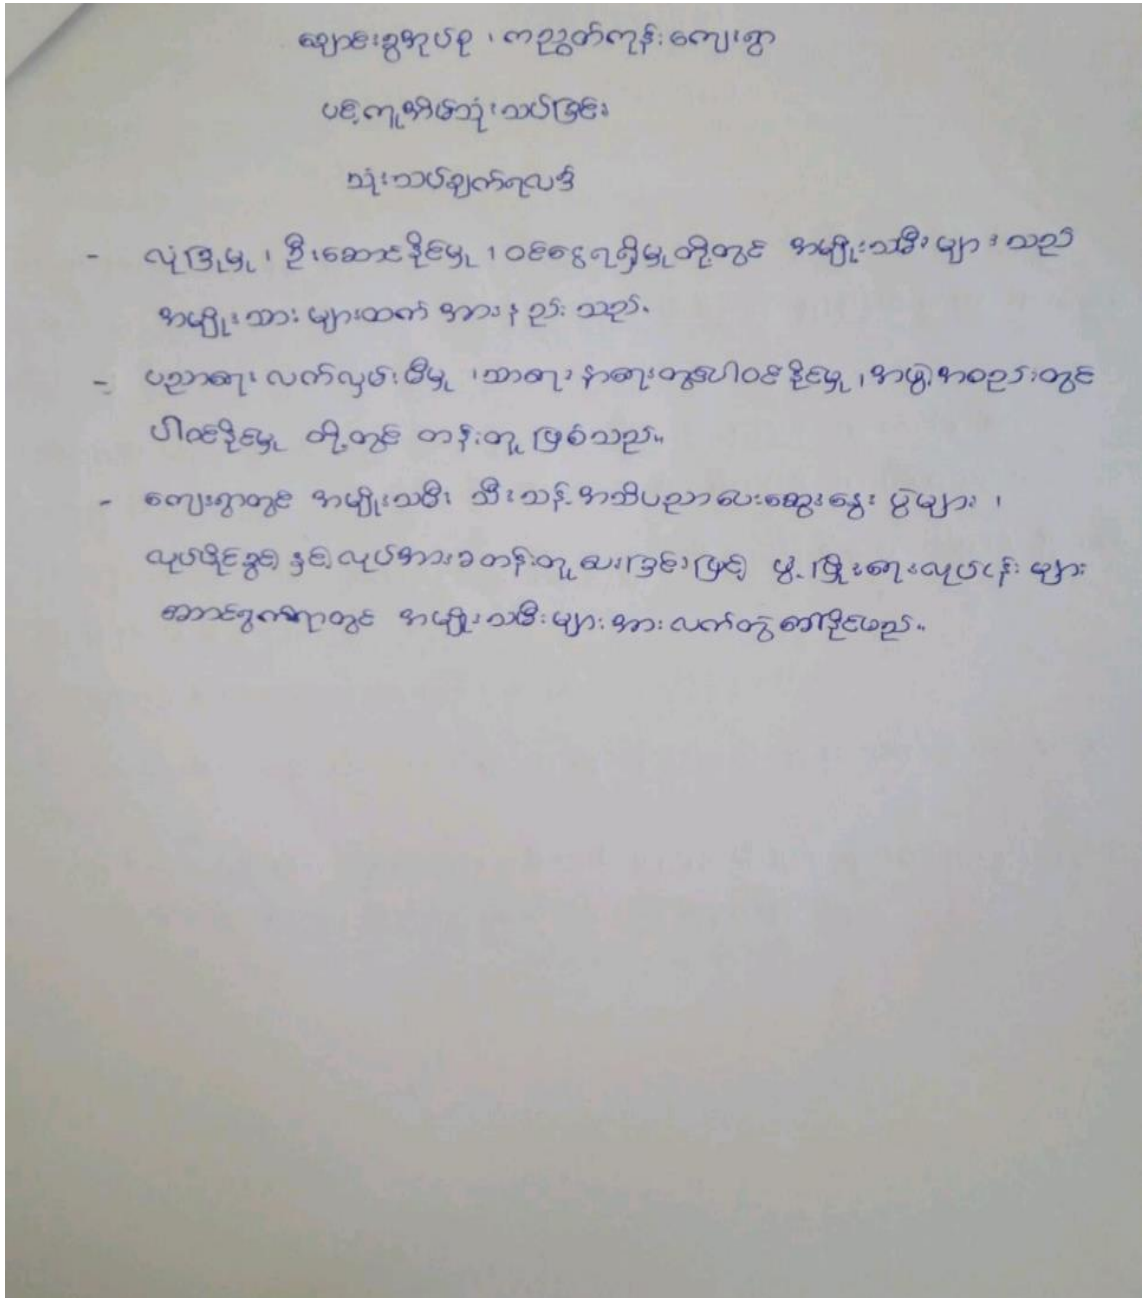 ချောင်းခွအုပ်စု ၊ ကညွတ်ကုန်းကျေးရွာ
ပင့်ကူအိမ်သုံးသပ်ခြင်း
သုံးသပ်ချက်ရလဒ်
- လုံခြုံမှု ၊ ဦးဆောင်နိုင်မှု ၊ ဝင်ငွေရရှိမှု တို့တွင် အမျိုးသမီး များ သည်
အမျိုးသား များထက် အားနည်း သည်။
- ပညာရေး လက်လှမ်းမီမှု ၊ သာရေး နာရေးတွင်ပါဝင်နိုင်မှု ၊ အဖွဲ့အစည်းတွင်
ပါဝင်နိုင်မှု တို့တွင် တန်းတူ ဖြစ်သည်။
- ကျေးရွာတွင် အမျိုးသမီး သီးသန့် အသိပညာပေးဆွေးနွေး ပွဲများ ၊
လုပ်ပိုင်ခွင့် နှင့် လုပ်အားခတန်းတူ ပေးခြင်းဖြင့် ဖွံ့ဖြိုးရေးလုပ်ငန်း များ
ဆောင်ရွက်ရာတွင် အမျိုးသမီးများအား လက်တွဲခေါ်နိုင်မည်။